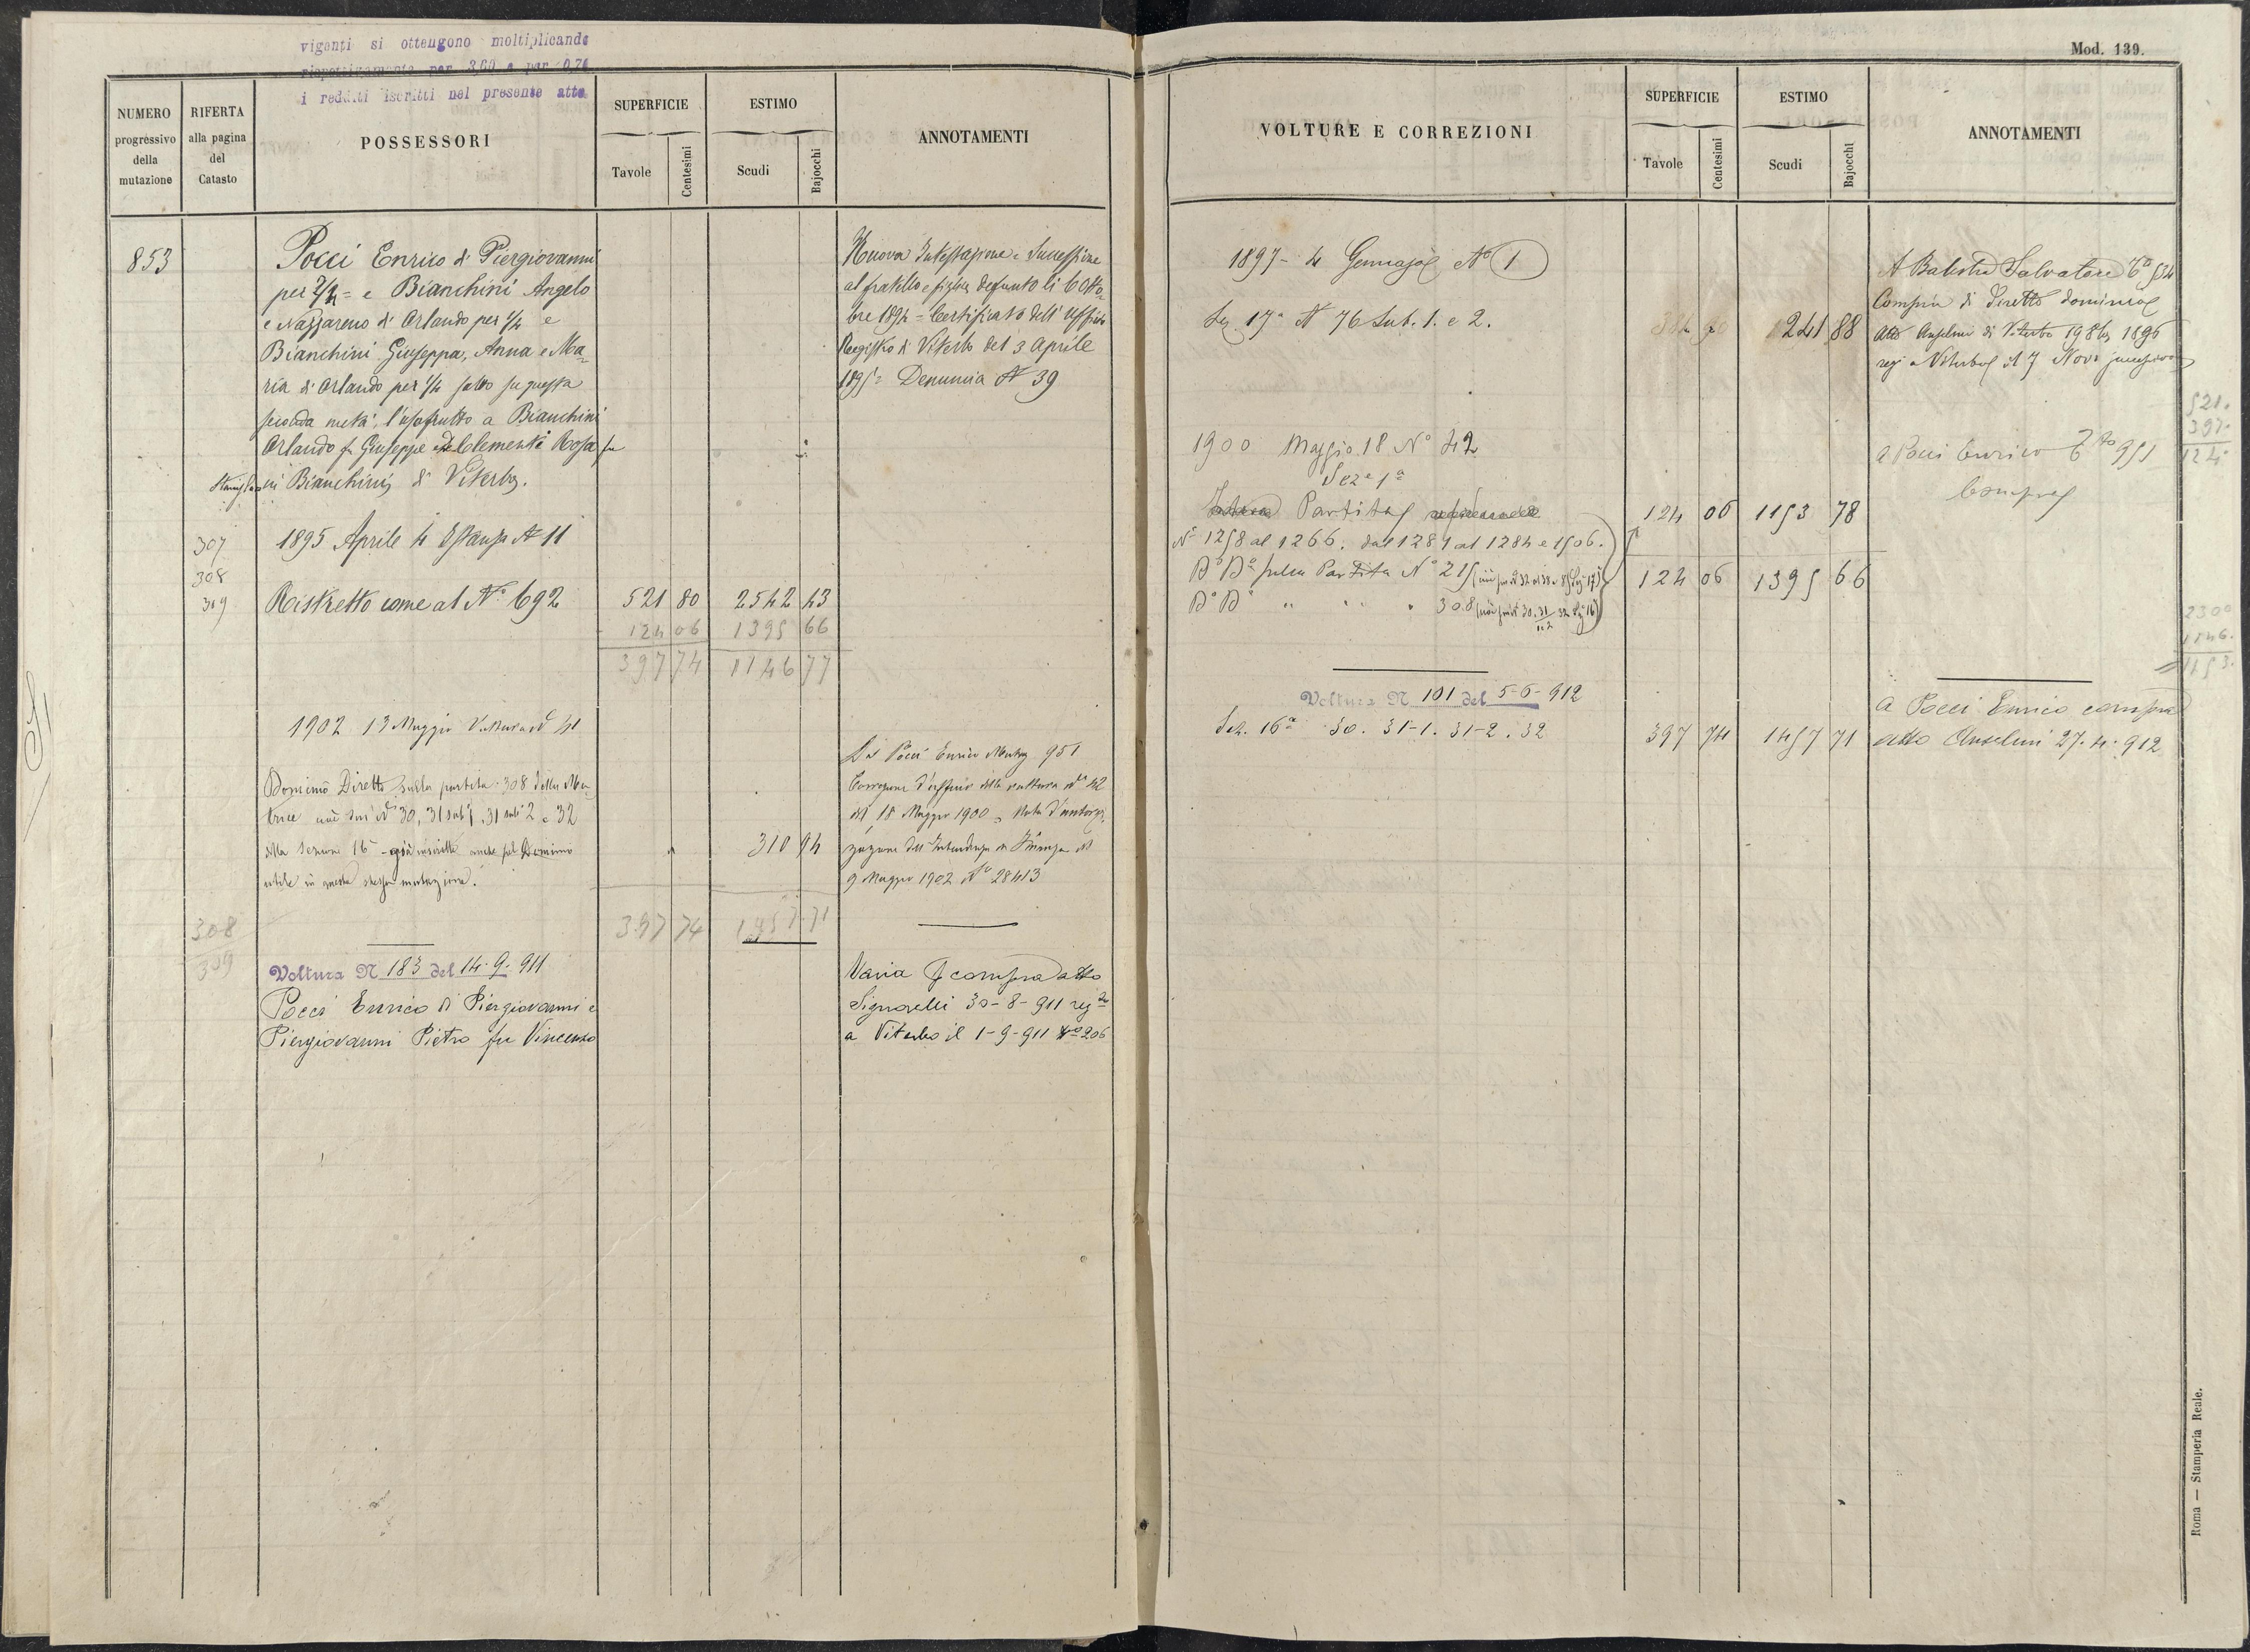 viganti si ottengono moltiplicando
rispettivamente per 3,60 e per 0,74
i redditi iscritti nel presente atto
NUMERO
progressivo
della
mutazione
RIFERTA
alla pagina
del
Catasto
POSSESSORI
SUPERFICIE
Tavole
Centesimi
ESTIMO
Scudi
Bajocchi
ANNOTAMENTI
853
Pocci Enrico di Piergiovanni
per 2/4 = e Bianchini Angelo
e Nazzareno di Orlando per 1/4 e
Bianchini Giuseppa, Anna e Ma=
ria di Orlando per 1/4 salvo su questa
seconda metà l'usofrutto a Bianchini
Orlando fu Giuseppe e Clementi Rosa fu
Stanislao in Bianchini di Viterbo.
Nuova Intestazione e Successione
al fratello e figlio defunto li 6 Otto=
bre 1894 = Certificato dell' Ufficio
Registro di Viterbo del 3 Aprile
1895 = Denuncia N 39
1895 Aprile 4 Istanza N 11
307
308
309
Ristretto come al No. 692
521 80 2542 43
124 06 1395 66
397 74 1146 77
1902 13 Maggio Voltura No 41
Dominio Diretto sulla partita 308 della Ma=
trice cioè sui Ni 30, 31 sub 1, 31 sub 2 e 32
della Sezione 16a già inscritte anche pel Dominio
utile in questa stessa mutazione.
310 94
Da Pocci Enrico Mutaz 951
Correzione d'ufficio della voltura No 42
del 18 Maggio 1900 = Nota d'autoriz=
zazione dell' Intendenza di Finanza del
9 Maggio 1902 No 28413
308
309
397 74 1457 71
Voltura N 183 del 14.9.911
Pocci Enrico di Piergiovanni e
Piergiovanni Pietro fu Vincenzo
Varia compra atto
Signorelli 30-8-911 regto
a Viterbo il 1-9-911 No 206
Mod. 139.
VOLTURE E CORREZIONI
SUPERFICIE
Tavole
Centesimi
ESTIMO
Scudi
Bajocchi
ANNOTAMENTI
1897 - 4 Gennajo No 1
Sez. 17a N 76 Sub. 1. e 2.
241 88
A Salvatore
Compra di Diretto dominio
Atto Anselmi di Viterbo 19 8bre 1896
reg a Viterbo il 7 Nove successivo
521.
397.
124.
1900 Maggio 18 No 42
Sez e 1a
Partita
124 06 1153 78
a Pocci Enrico 951
Compra
No 1258 al 1266. dal 1281 al 1284 e 1506.
Do Do sulla Partita No 215
124 06 1395 66
Do Do " " " 308
230
1146.
1153.
Voltura N 101 del 5-6-912
Sez. 16a 30. 31-1. 31-2. 32
397 74 1457 71
A Pocci Enrico compra
atto Anselmi 27.4.912
Roma — Stamperia Reale.